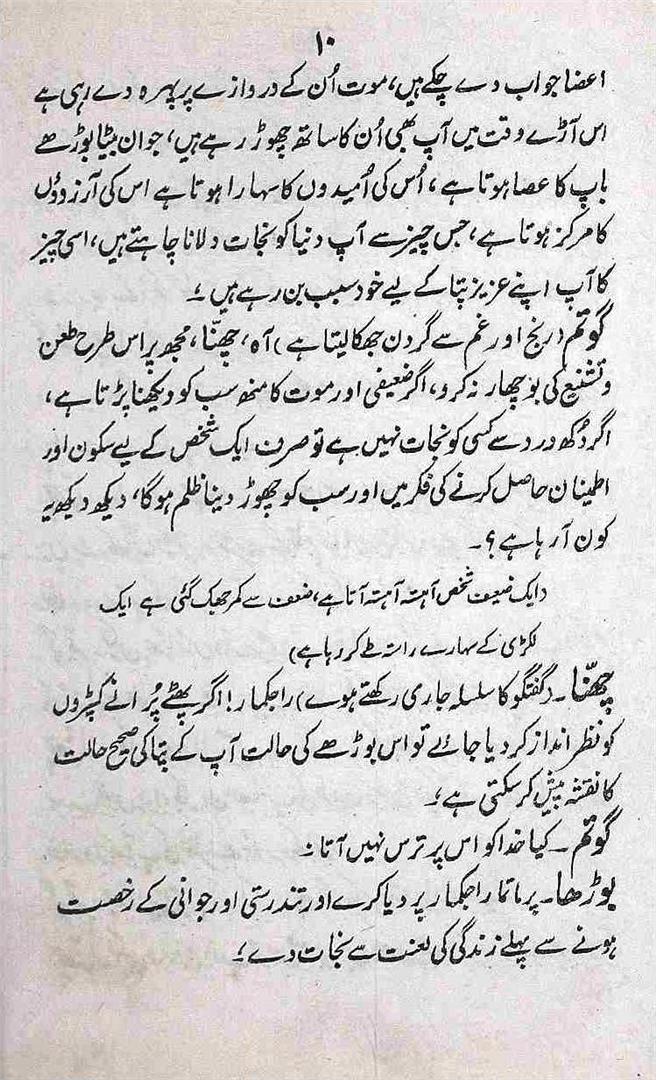 ۱۰
اعضا جواب دے چکے ہیں، موت اُن کے دروازے پر پہرہ دے رہی ہے
اس آڑے وقت میں آپ بھی اُن کا ساتھ چھوڑ رہے ہیں، جوان بیٹا بوڑھے
باپ کا عصا ہوتا ہے، اُس کی اُمیدوں کا سہارا ہوتا ہے اس کی آرزوؤں
کا مرکز ہوتا ہے، جس چیز سے آپ دنیا کو نجات دلانا چاہتے ہیں، اسی چیز
کا آپ اپنے عزیز پتا کے لیے خود سبب بن رہے ہیں؛
گوتم (رنج اور غم سے گردن جھکا لیتا ہے) آہ، چھنّا، مجھ پر اس طرح طعن
و تشنیع کی بوچھار نہ کرو، اگر ضعیفی اور موت کا منھ سب کو دیکھنا پڑتا ہے،
اگر دُکھ درد سے کسی کو نجات نہیں ہے تو صرف ایک شخص کے لیے سکون اور
اطمینان حاصل کرنے کی فکر میں اور سب کو چھوڑ دینا ظلم ہوگا، دیکھ دیکھ یہ
کون آرہا ہے؟۔
(ایک ضعیف شخص آہستہ آہستہ آتا ہے، ضعف سے کمر جھک گئی ہے ایک
لکڑی کے سہارے راستہ طے کر رہا ہے)
چھنّا۔ (گفتگو کا سلسلہ جاری رکھتے ہوے) راجکمار! اگر پھٹے پُرانے کپڑوں
کو نظر انداز کر دیا جائے تو اس بوڑھے کی حالت آپ کے پتا کی صحیح حالت
کا نقشہ پیش کر سکتی ہے؛
گوتم۔ کیا خدا کو اس پر ترس نہیں آتا۔
بوڑھا۔ پرماتما راجکمار پر دیا کرے اور تندرستی اور جوانی کے رخصت
ہونے سے پہلے زندگی کی لعنت سے نجات دے؛